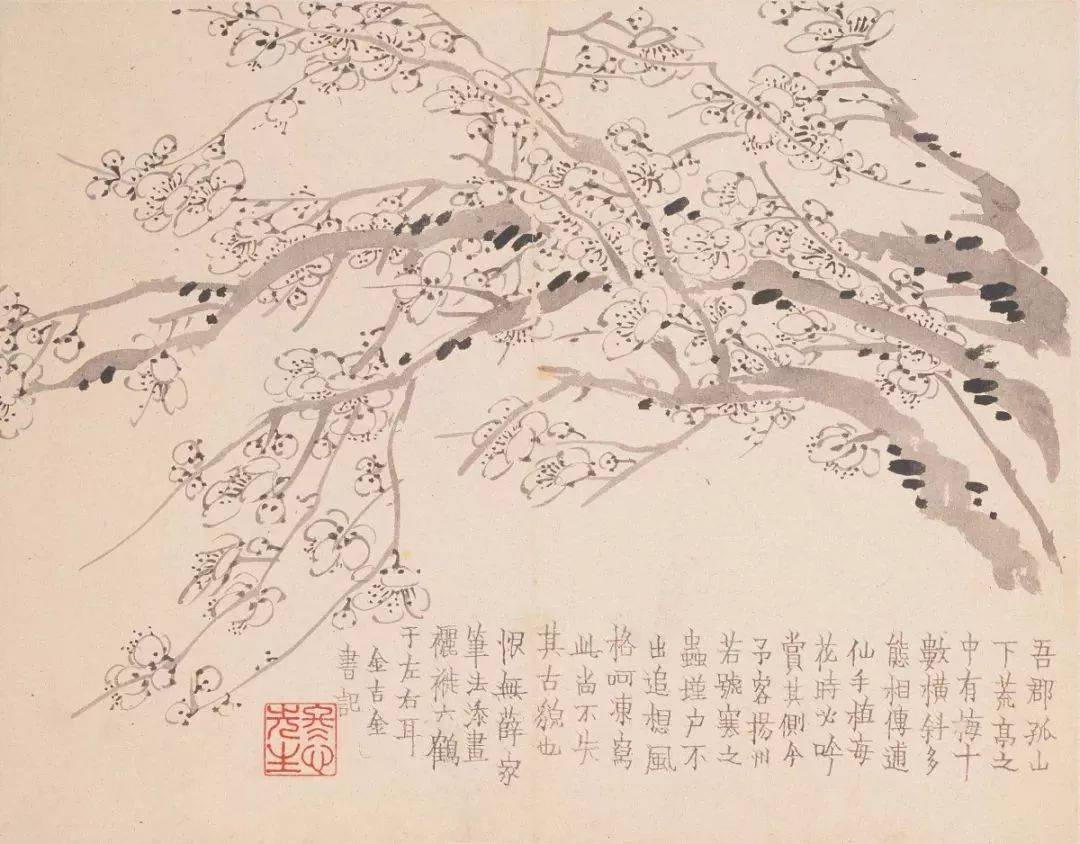 吾郡孤山
下荒亭之
中有梅十
數橫斜多
態相傳逋
仙手植每
花時必吟
賞其側今
予客揚州
若號寒之
蟲墐户不
出追想風
格呵凍寫
此尚不失
其古貌也
恨無薛家
筆法添畫
襹褷六鶴
于左右耳
金吉金
書記
冬心
先生